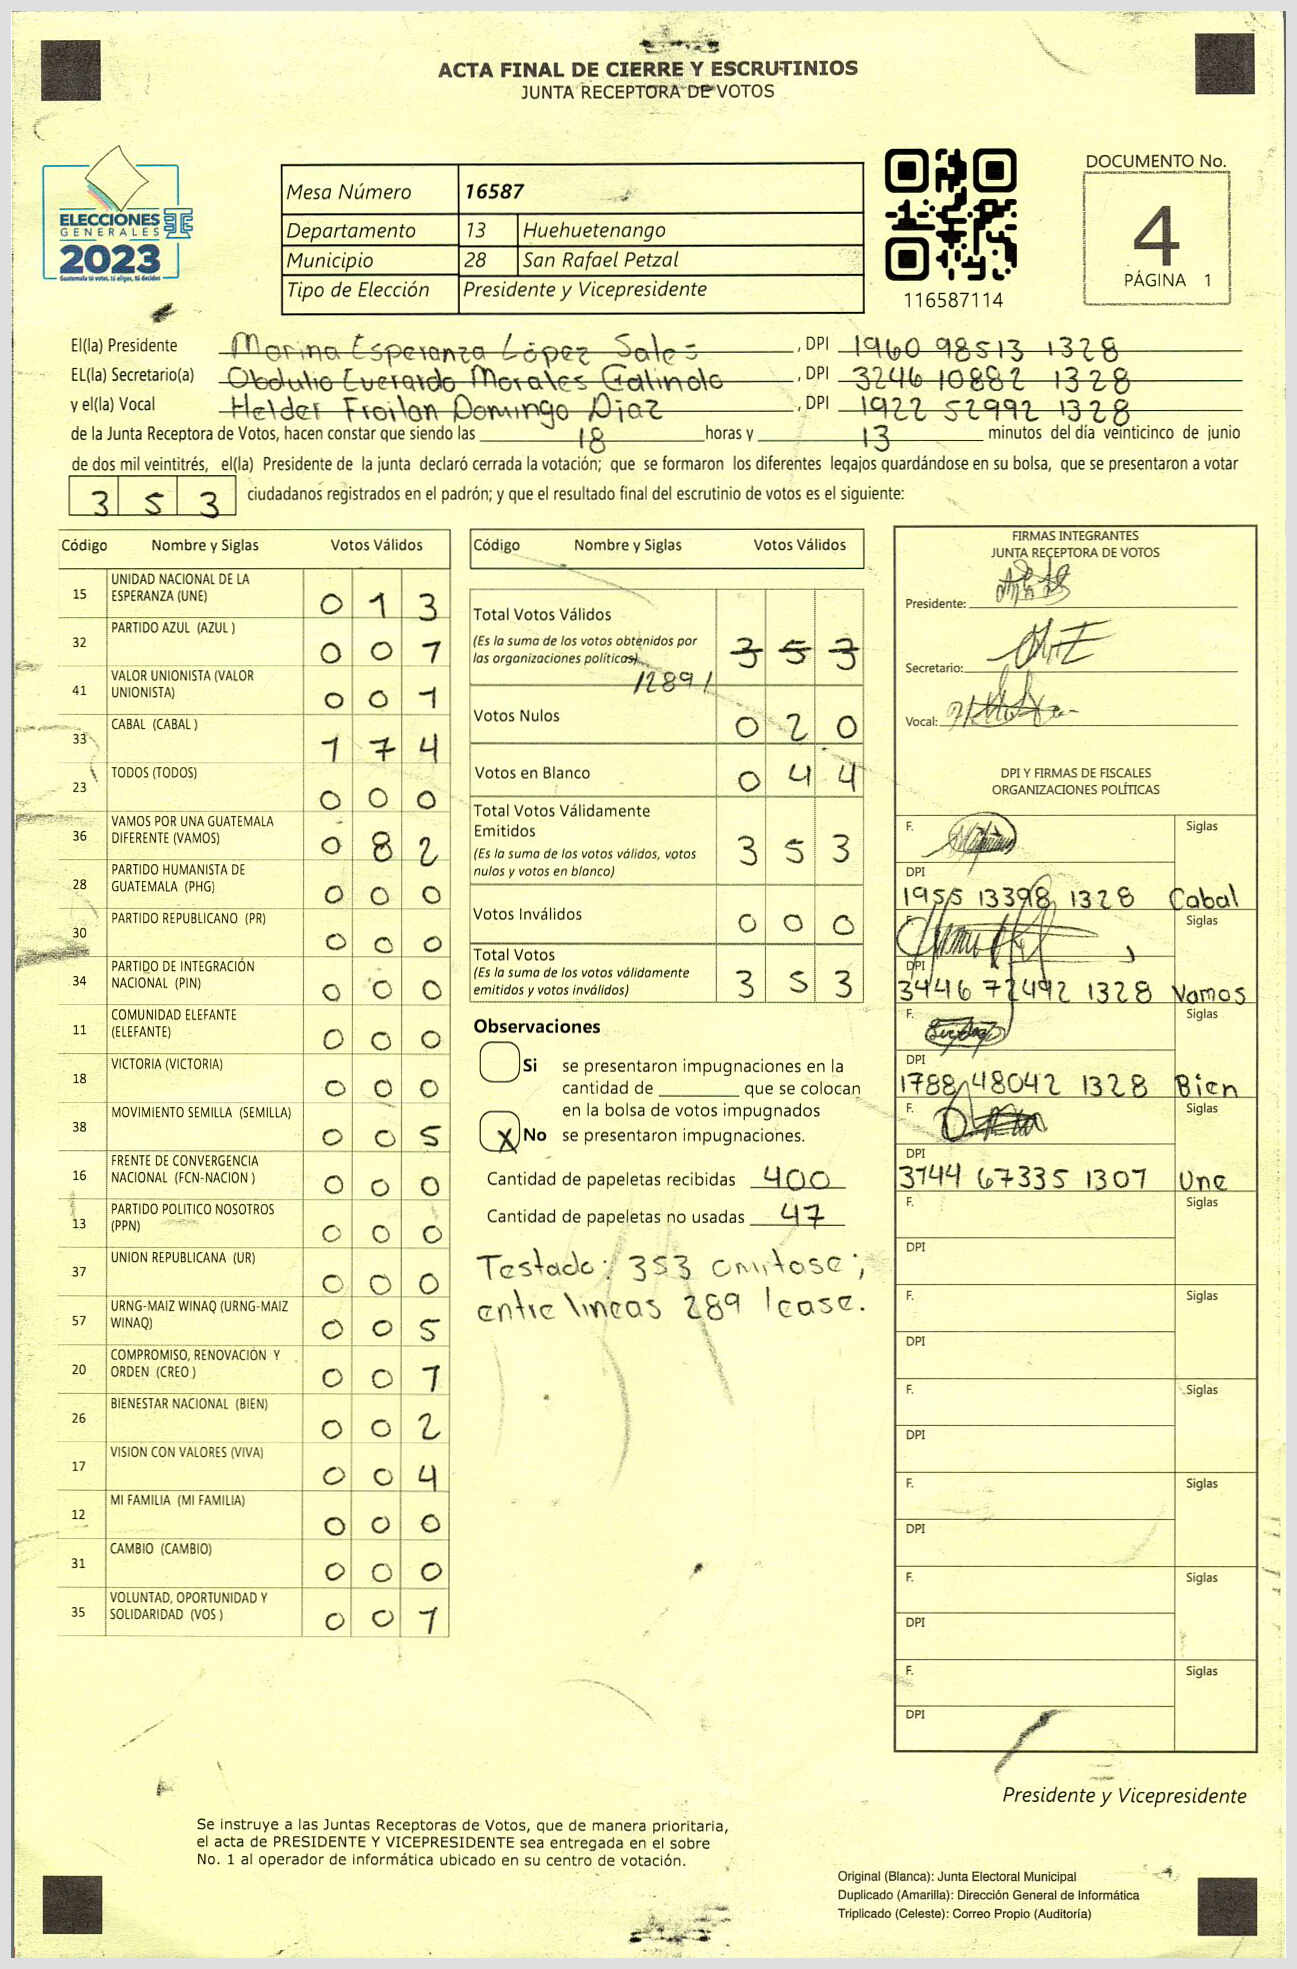 ACTA FINAL DE CIERRE Y ESCRUTINIOS
JUNTA RECEPTORA DE VOTOS
ELECCIONES
GENERALES
2023
Guatemala tú votas, tú eliges, tú decides
Mesa Número 16587
Departamento 13 Huehuetenango
Municipio 28 San Rafael Petzal
Tipo de Elección Presidente y Vicepresidente
116587114
DOCUMENTO No.
4
PÁGINA 1
El(la) Presidente Marina Esperanza López Sales, DPI 1960 98513 1328
EL(la) Secretario(a) Obdulio Everardo Morales Galindo, DPI 3246 10882 1328
y el(la) Vocal Helder Froilan Domingo Diaz, DPI 1922 52992 1328
de la Junta Receptora de Votos, hacen constar que siendo las 18 horas y 13 minutos del día veinticinco de junio
de dos mil veintitrés, el(la) Presidente de la junta declaró cerrada la votación; que se formaron los diferentes legajos guardándose en su bolsa, que se presentaron a votar
353 ciudadanos registrados en el padrón; y que el resultado final del escrutinio de votos es el siguiente:
Código Nombre y Siglas Votos Válidos
15 UNIDAD NACIONAL DE LA
ESPERANZA (UNE) 0 1 3
32 PARTIDO AZUL (AZUL ) 0 0 1
41 VALOR UNIONISTA (VALOR
UNIONISTA) 0 0 1
33 CABAL (CABAL ) 1 7 4
23 TODOS (TODOS) 0 0 0
36 VAMOS POR UNA GUATEMALA
DIFERENTE (VAMOS) 0 8 2
28 PARTIDO HUMANISTA DE
GUATEMALA (PHG) 0 0 0
30 PARTIDO REPUBLICANO (PR) 0 0 0
34 PARTIDO DE INTEGRACIÓN
NACIONAL (PIN) 0 0 0
11 COMUNIDAD ELEFANTE
(ELEFANTE) 0 0 0
18 VICTORIA (VICTORIA) 0 0 0
38 MOVIMIENTO SEMILLA (SEMILLA) 0 0 5
16 FRENTE DE CONVERGENCIA
NACIONAL (FCN-NACION ) 0 0 0
13 PARTIDO POLITICO NOSOTROS
(PPN) 0 0 0
37 UNION REPUBLICANA (UR) 0 0 0
57 URNG-MAIZ WINAQ (URNG-MAIZ
WINAQ) 0 0 5
20 COMPROMISO, RENOVACIÓN Y
ORDEN (CREO ) 0 0 1
26 BIENESTAR NACIONAL (BIEN) 0 0 2
17 VISION CON VALORES (VIVA) 0 0 4
12 MI FAMILIA (MI FAMILIA) 0 0 0
31 CAMBIO (CAMBIO) 0 0 0
35 VOLUNTAD, OPORTUNIDAD Y
SOLIDARIDAD (VOS ) 0 0 1
Código Nombre y Siglas Votos Válidos
Total Votos Válidos
(Es la suma de los votos obtenidos por
las organizaciones políticas) 3 5 3
/289/
Votos Nulos 0 2 0
Votos en Blanco 0 4 4
Total Votos Válidamente
Emitidos
(Es la suma de los votos válidos, votos
nulos y votos en blanco) 3 5 3
Votos Inválidos 0 0 0
Total Votos
(Es la suma de los votos válidamente
emitidos y votos inválidos) 3 5 3
Observaciones
Si se presentaron impugnaciones en la
cantidad de ________ que se colocan
en la bolsa de votos impugnados
X No se presentaron impugnaciones.
Cantidad de papeletas recibidas 400
Cantidad de papeletas no usadas 47
Testado: 353 omitase;
entre lineas 289 lease.
FIRMAS INTEGRANTES
JUNTA RECEPTORA DE VOTOS
Presidente:
Secretario:
Vocal:
DPI Y FIRMAS DE FISCALES
ORGANIZACIONES POLÍTICAS
F. Siglas
DPI
1955 13398 1328 Cabal
F. Siglas
DPI
3446 72492 1328 Vamos
F. Siglas
DPI
1788 48042 1328 Bien
F. Siglas
DPI
3144 67335 1307 Une
F. Siglas
DPI
F. Siglas
DPI
F. Siglas
DPI
F. Siglas
DPI
F. Siglas
DPI
F. Siglas
DPI
Presidente y Vicepresidente
Se instruye a las Juntas Receptoras de Votos, que de manera prioritaria,
el acta de PRESIDENTE Y VICEPRESIDENTE sea entregada en el sobre
No. 1 al operador de informática ubicado en su centro de votación.
Original (Blanca): Junta Electoral Municipal
Duplicado (Amarilla): Dirección General de Informática
Triplicado (Celeste): Correo Propio (Auditoría)